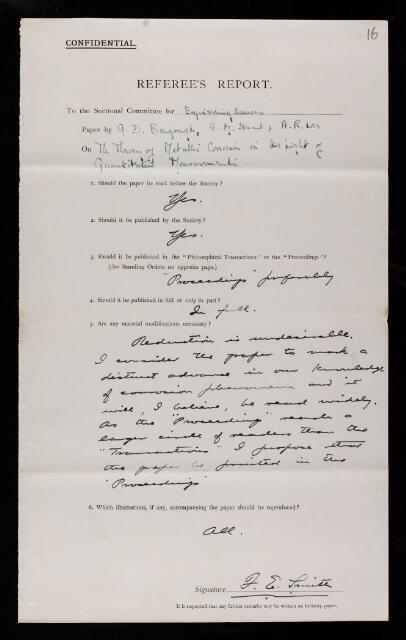 16
CONFIDENTIAL.
REFEREE'S REPORT.
To the Sectional Committee for Engineering Sciences
Paper by G. D. Bengough, & A. R. Lee
On The Theory of Metallic Corrosion in the Light of
Quantitative Measurements.
1. Should the paper be read before the Society?
Yes.
2. Should it be published by the Society?
Yes.
3. Should it be published in the "Philosophical Transactions" or the "Proceedings"?
(See Standing Orders on opposite page.)
"Proceedings" preferably
4. Should it be published in full or only in part?
In full.
5. Are any material modifications necessary?
Reduction is undesirable.
I consider the paper to mark a
distinct advance in our knowledge
of corrosion phenomena and it
will, I believe, be read widely.
As the "Proceedings" reach a
larger circle of readers than the
"Transactions" I propose that
the paper be printed in the
"Proceedings"
6. Which illustrations, if any, accompanying the paper should be reproduced?
All.
Signature F. E. Smith
It is requested that any further remarks may be written on foolscap paper.